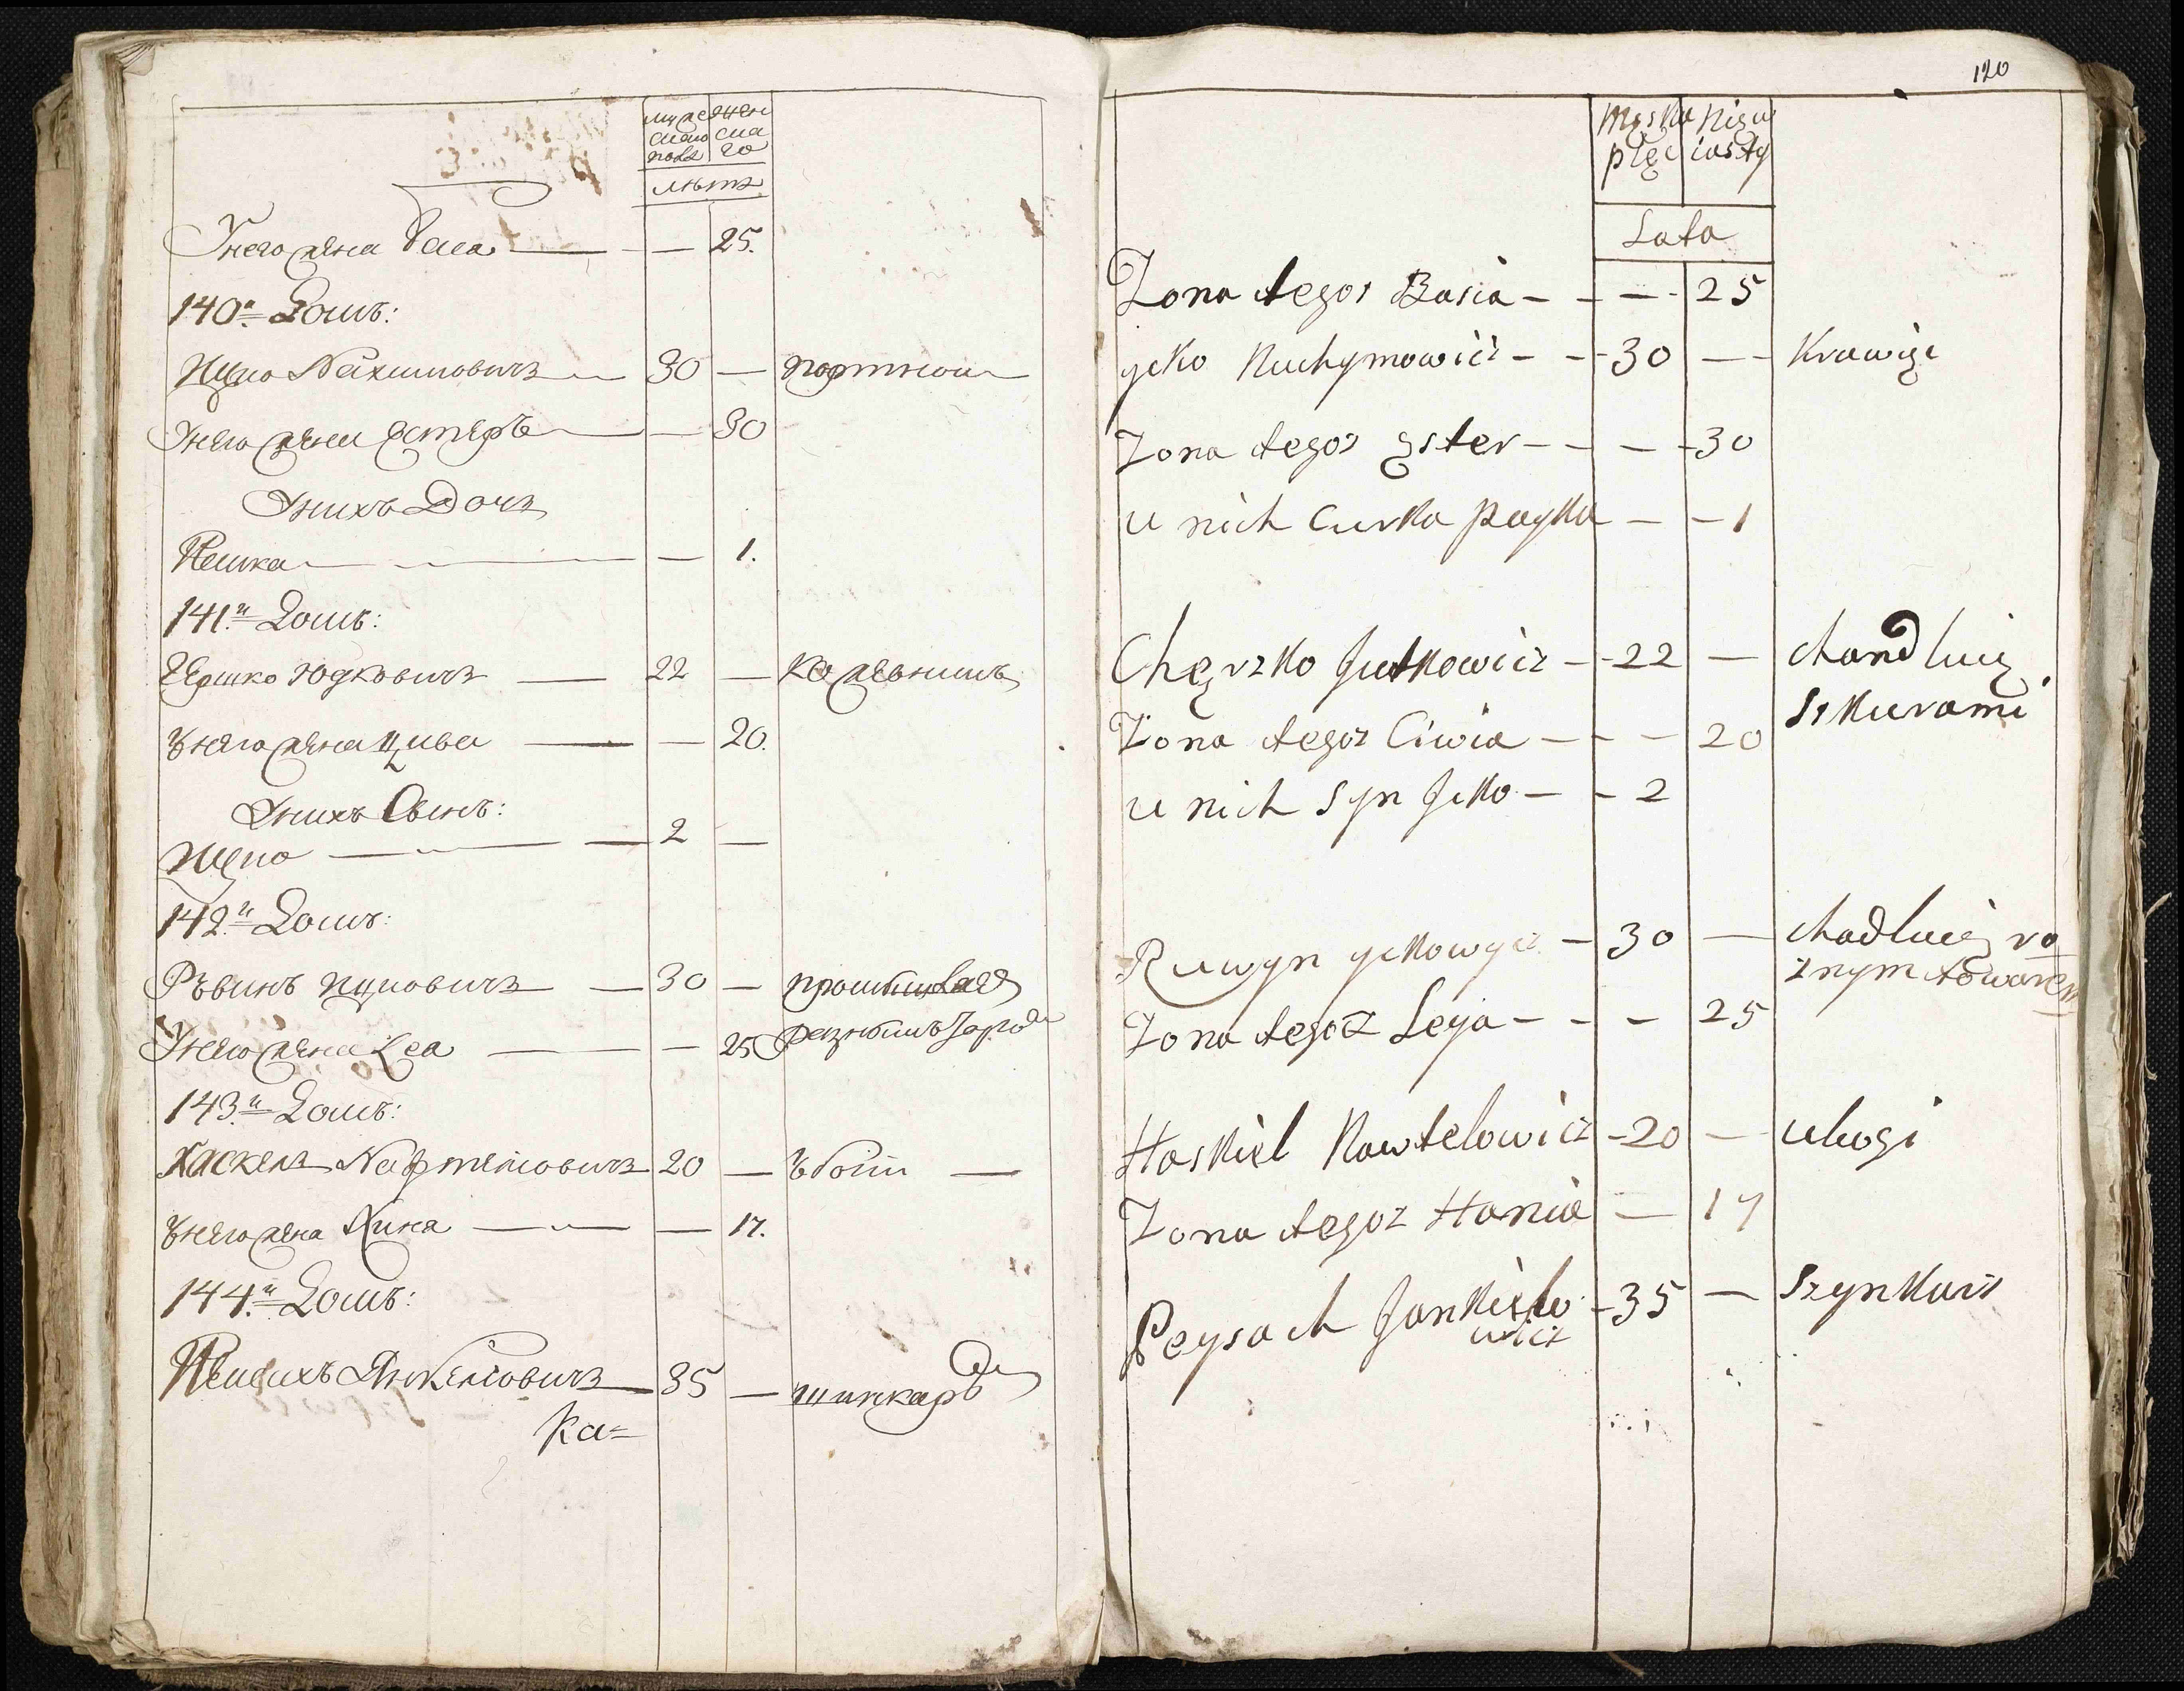 мужескаго пола женскаго
лѣтъ
Унего жена Баса — — 25.
140й Домъ:
Ицко Нахимовичъ — 30 — портной
Унего жена Естеръ — — 30
Унихъ Дочь
Пешка — — 1.
141й Домъ:
Гершко Юдковичъ — 22 — кожевникъ
Унего жена Цива — — 20.
Унихъ Сынъ:
Ицко — — 2 —
142й Домъ:
Рѣвинъ Ицковичъ — 30 —
Унего жена Лея — — 25
143й Домъ:
Хаскель Нафтелиовичъ 20 — Убогий —
Унего жена Хина — — 17.
144й Домъ:
Пейсихъ Янкелиовичъ — 35 — шинкарь
Ка=
120
Męska płeć Niewiasty
Lata
Zona tegoz Basia - - - 25
ycko Nuchymowicz - - 30 — Krawiec
Zona tegoz Ester - - - 30
u nich Curka payka - - 1
Cherzko Jutkowicz - 22 — chandluie
skurami
Zona tegoz Ciwia - - - 20
u nich Syn Jcko - - 2
Ruwyn yckowycz - 30 — chadluie ro
znym towarem
Zona tegoz Leya - - - 25
Haskiel Nawtelowicz - 20 — ubogi
Zona tegoz Hania — 17
Peysach Jankielo
wicz - 35 — Szynkarz